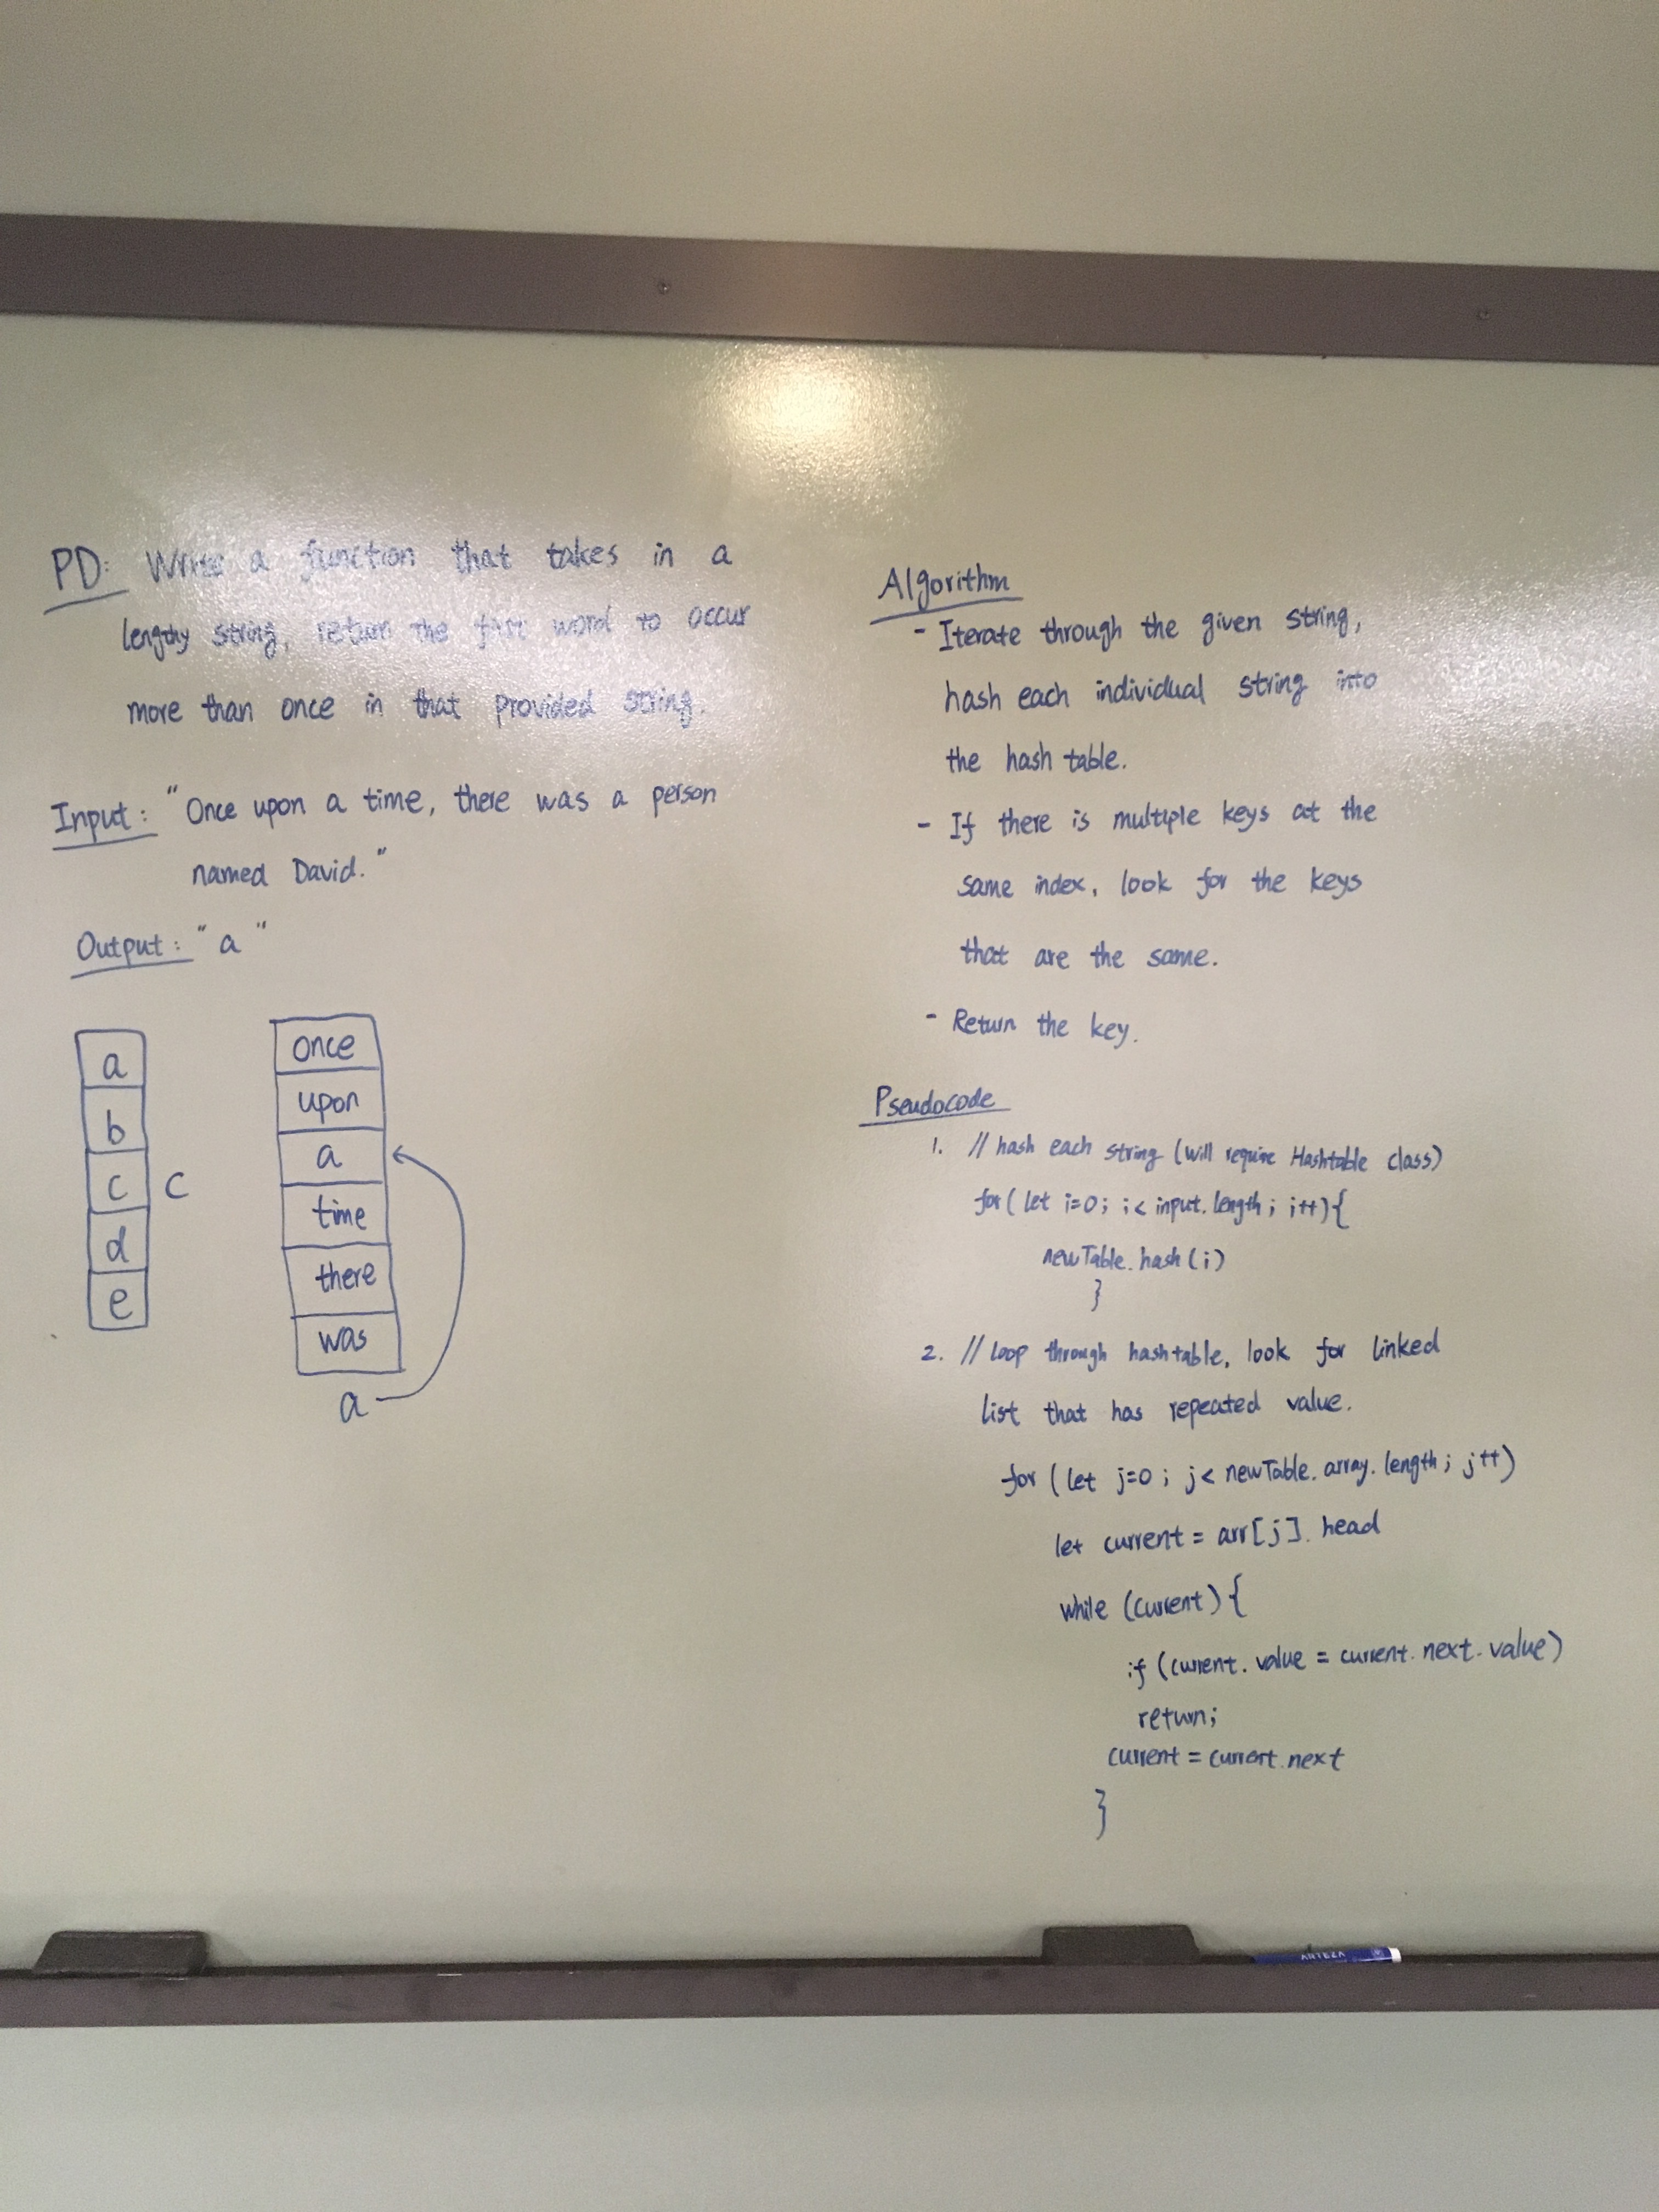 PD: Write a function that takes in a
lengthy string, return the first word to occur
more than once in that provided string.
Input: "Once upon a time, there was a person
named David."
Output: "a"
a
b
c c
d
e
once
upon
a
time
there
was
a
Algorithm
- Iterate through the given string,
hash each individual string into
the hash table.
- If there is multiple keys at the
same index, look for the keys
that are the same.
- Return the key.
Pseudocode
1. // hash each string (will require Hashtable class)
for( let i=0; i< input.length; i++){
newTable.hash(i)
}
2. // loop through hashtable, look for linked
list that has repeated value.
for (let j=0; j< newTable.array.length; j++)
let current = arr[j].head
while (current){
if (current.value = current.next.value)
return;
current = current.next
}
ARTEZA